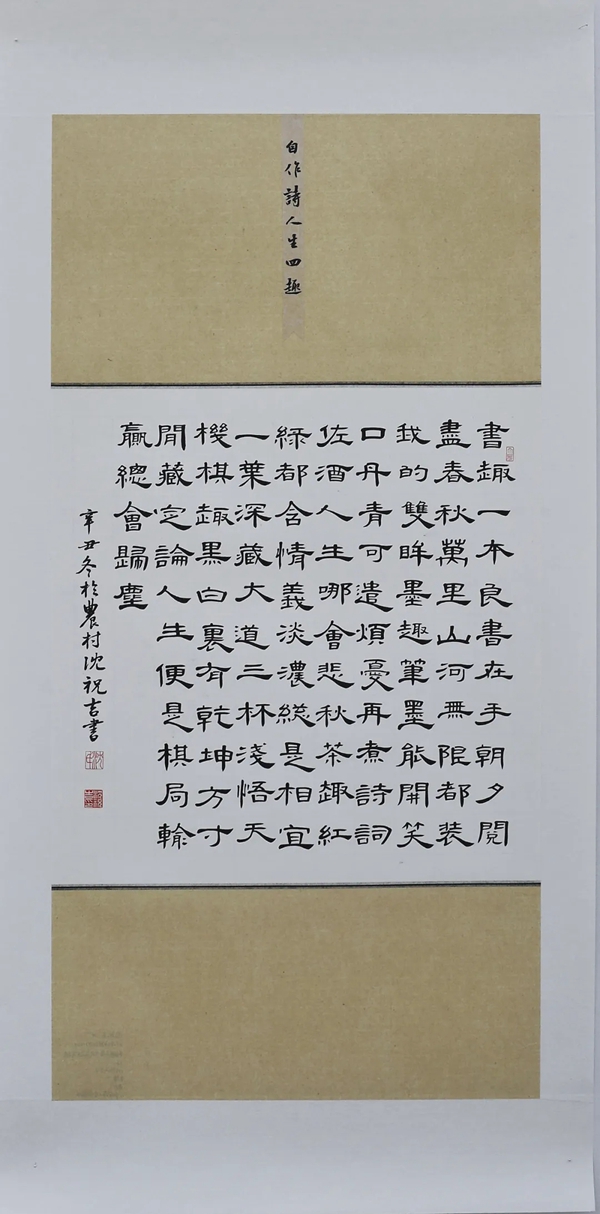 自作詩人生四趣
書趣一本良書在手朝夕閱
盡春秋萬里山河無限都裝
我的雙眸墨趣筆墨能開笑
口丹青可遣煩憂再煮詩詞
佐酒人生哪會悲秋茶趣紅
綠都含情義淡濃總是相宜
一葉深藏大道三杯淺悟天
機棋趣黑白裏有乾坤方寸
間藏定論人生便是棋局輸
贏總會歸塵
辛丑冬於農村沈祝吉書